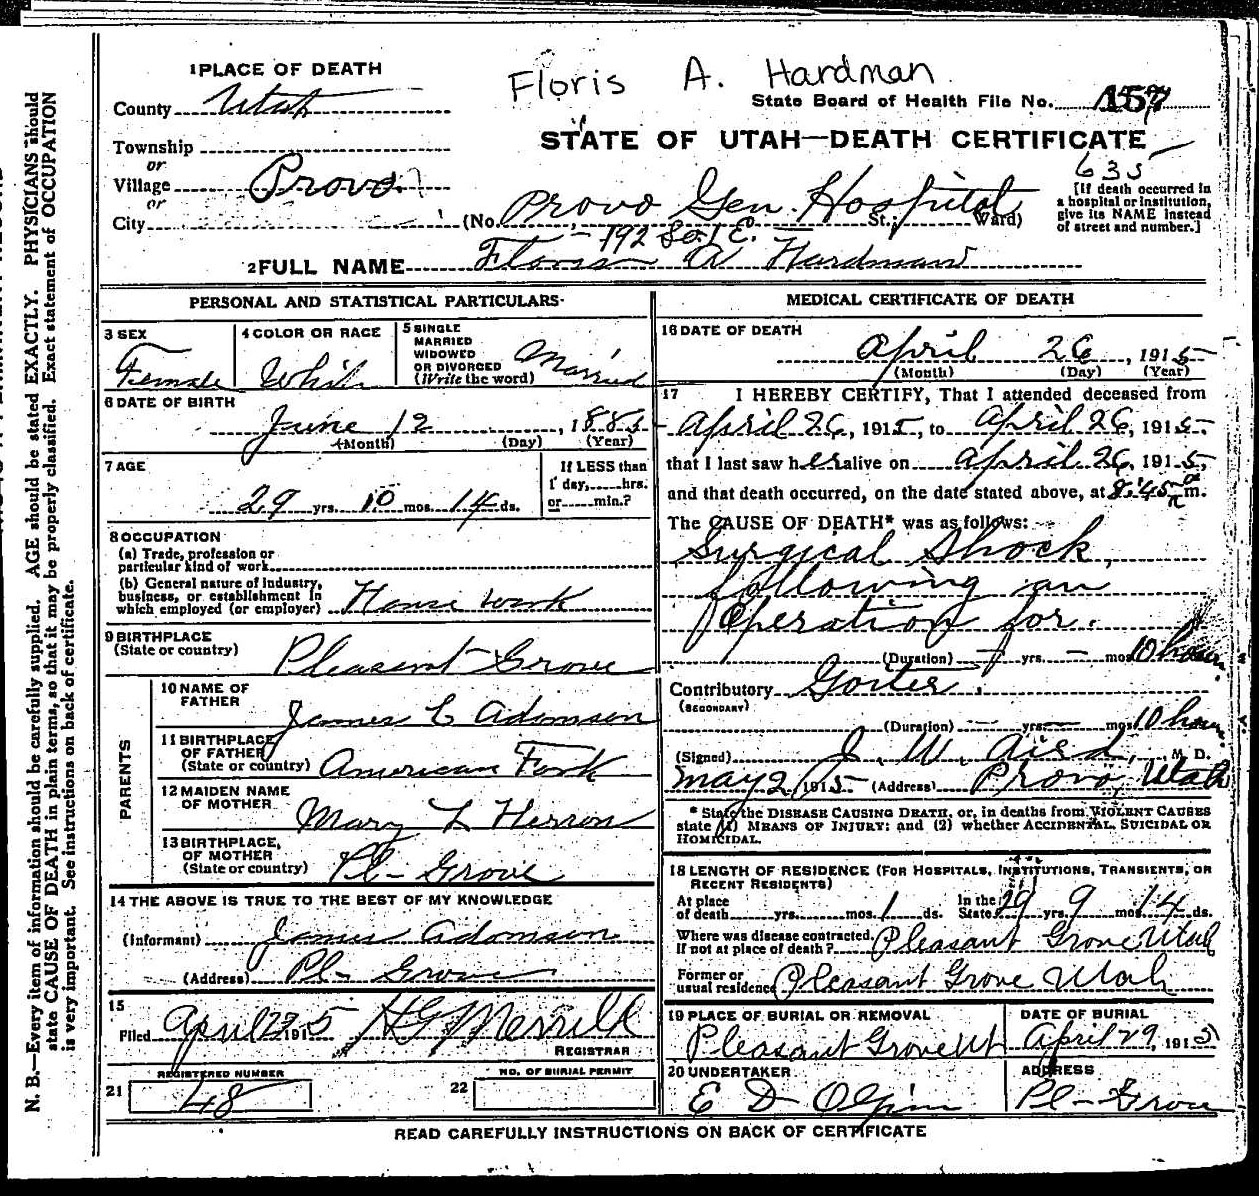 Floris A. Hardman
1 PLACE OF DEATH
County Utah
State Board of Health File No. 157
STATE OF UTAH—DEATH CERTIFICATE
635
Township
or
Village Provo.
or
City
(No. Provo Gen. Hospital St.; Ward)
192 So. 1 E.
[If death occurred in
a hospital or institution,
give its NAME instead
of street and number.]
2 FULL NAME Floris A Hardman
PERSONAL AND STATISTICAL PARTICULARS
3 SEX
Female
4 COLOR OR RACE
White
5 SINGLE
MARRIED
WIDOWED
OR DIVORCED
(Write the word)
Married
6 DATE OF BIRTH
June 12, 1885
(Month) (Day) (Year)
7 AGE
29 yrs. 10 mos. 14 ds.
If LESS than
1 day, hrs.
or min.?
8 OCCUPATION
(a) Trade, profession or
particular kind of work
(b) General nature of industry,
business, or establishment in
which employed (or employer) House work
9 BIRTHPLACE
(State or country) Pleasant Grove
PARENTS
10 NAME OF
FATHER
James C Adamson
11 BIRTHPLACE
OF FATHER
(State or country) American Fork
12 MAIDEN NAME
OF MOTHER
Mary L Herron
13 BIRTHPLACE,
OF MOTHER
(State or country) Pl- Grove
14 THE ABOVE IS TRUE TO THE BEST OF MY KNOWLEDGE
(Informant) James Adamson
(Address) Pl- Grove
15
Filed April 1915 H G Merrill
REGISTRAR
21 REGISTERED NUMBER
48
22 NO. OF BURIAL PERMIT
MEDICAL CERTIFICATE OF DEATH
16 DATE OF DEATH
April 26, 1915
(Month) (Day) (Year)
17 I HEREBY CERTIFY, That I attended deceased from
April 26, 1915, to April 26, 1915.
that I last saw her alive on April 26, 1915,
and that death occurred, on the date stated above, at 8:45 m.
The CAUSE OF DEATH* was as follows:
Surgical Shock,
following an
Operation for.
(Duration) - yrs. - mos. 10 hours.
Contributory Goiter.
(SECONDARY)
(Duration) - yrs. - mos. 10 hour
(Signed) J. W. Aird, M. D.
May 2 1915 (Address) Provo, Utah
* State the DISEASE CAUSING DEATH, or, in deaths from VIOLENT CAUSES
state (1) MEANS OF INJURY: and (2) whether ACCIDENTAL, SUICIDAL OR
HOMICIDAL.
18 LENGTH OF RESIDENCE (FOR HOSPITALS, INSTITUTIONS, TRANSIENTS, OR
RECENT RESIDENTS)
At place
of death yrs. mos. 1 ds.
In the
State 29 yrs. 9 mos. 14 ds.
Where was disease contracted,
If not at place of death? Pleasant Grove Utah
Former or
usual residence Pleasant Grove Utah
19 PLACE OF BURIAL OR REMOVAL
Pleasant Grove Ut
DATE OF BURIAL
April 29, 1915
20 UNDERTAKER
E D Olpin
ADDRESS
Pl- Grove
READ CAREFULLY INSTRUCTIONS ON BACK OF CERTIFICATE
N. B.—Every item of information should be carefully supplied. AGE should be stated EXACTLY. PHYSICIANS should
state CAUSE OF DEATH in plain terms, so that it may be properly classified. Exact statement of OCCUPATION
is very important. See instructions on back of certificate.